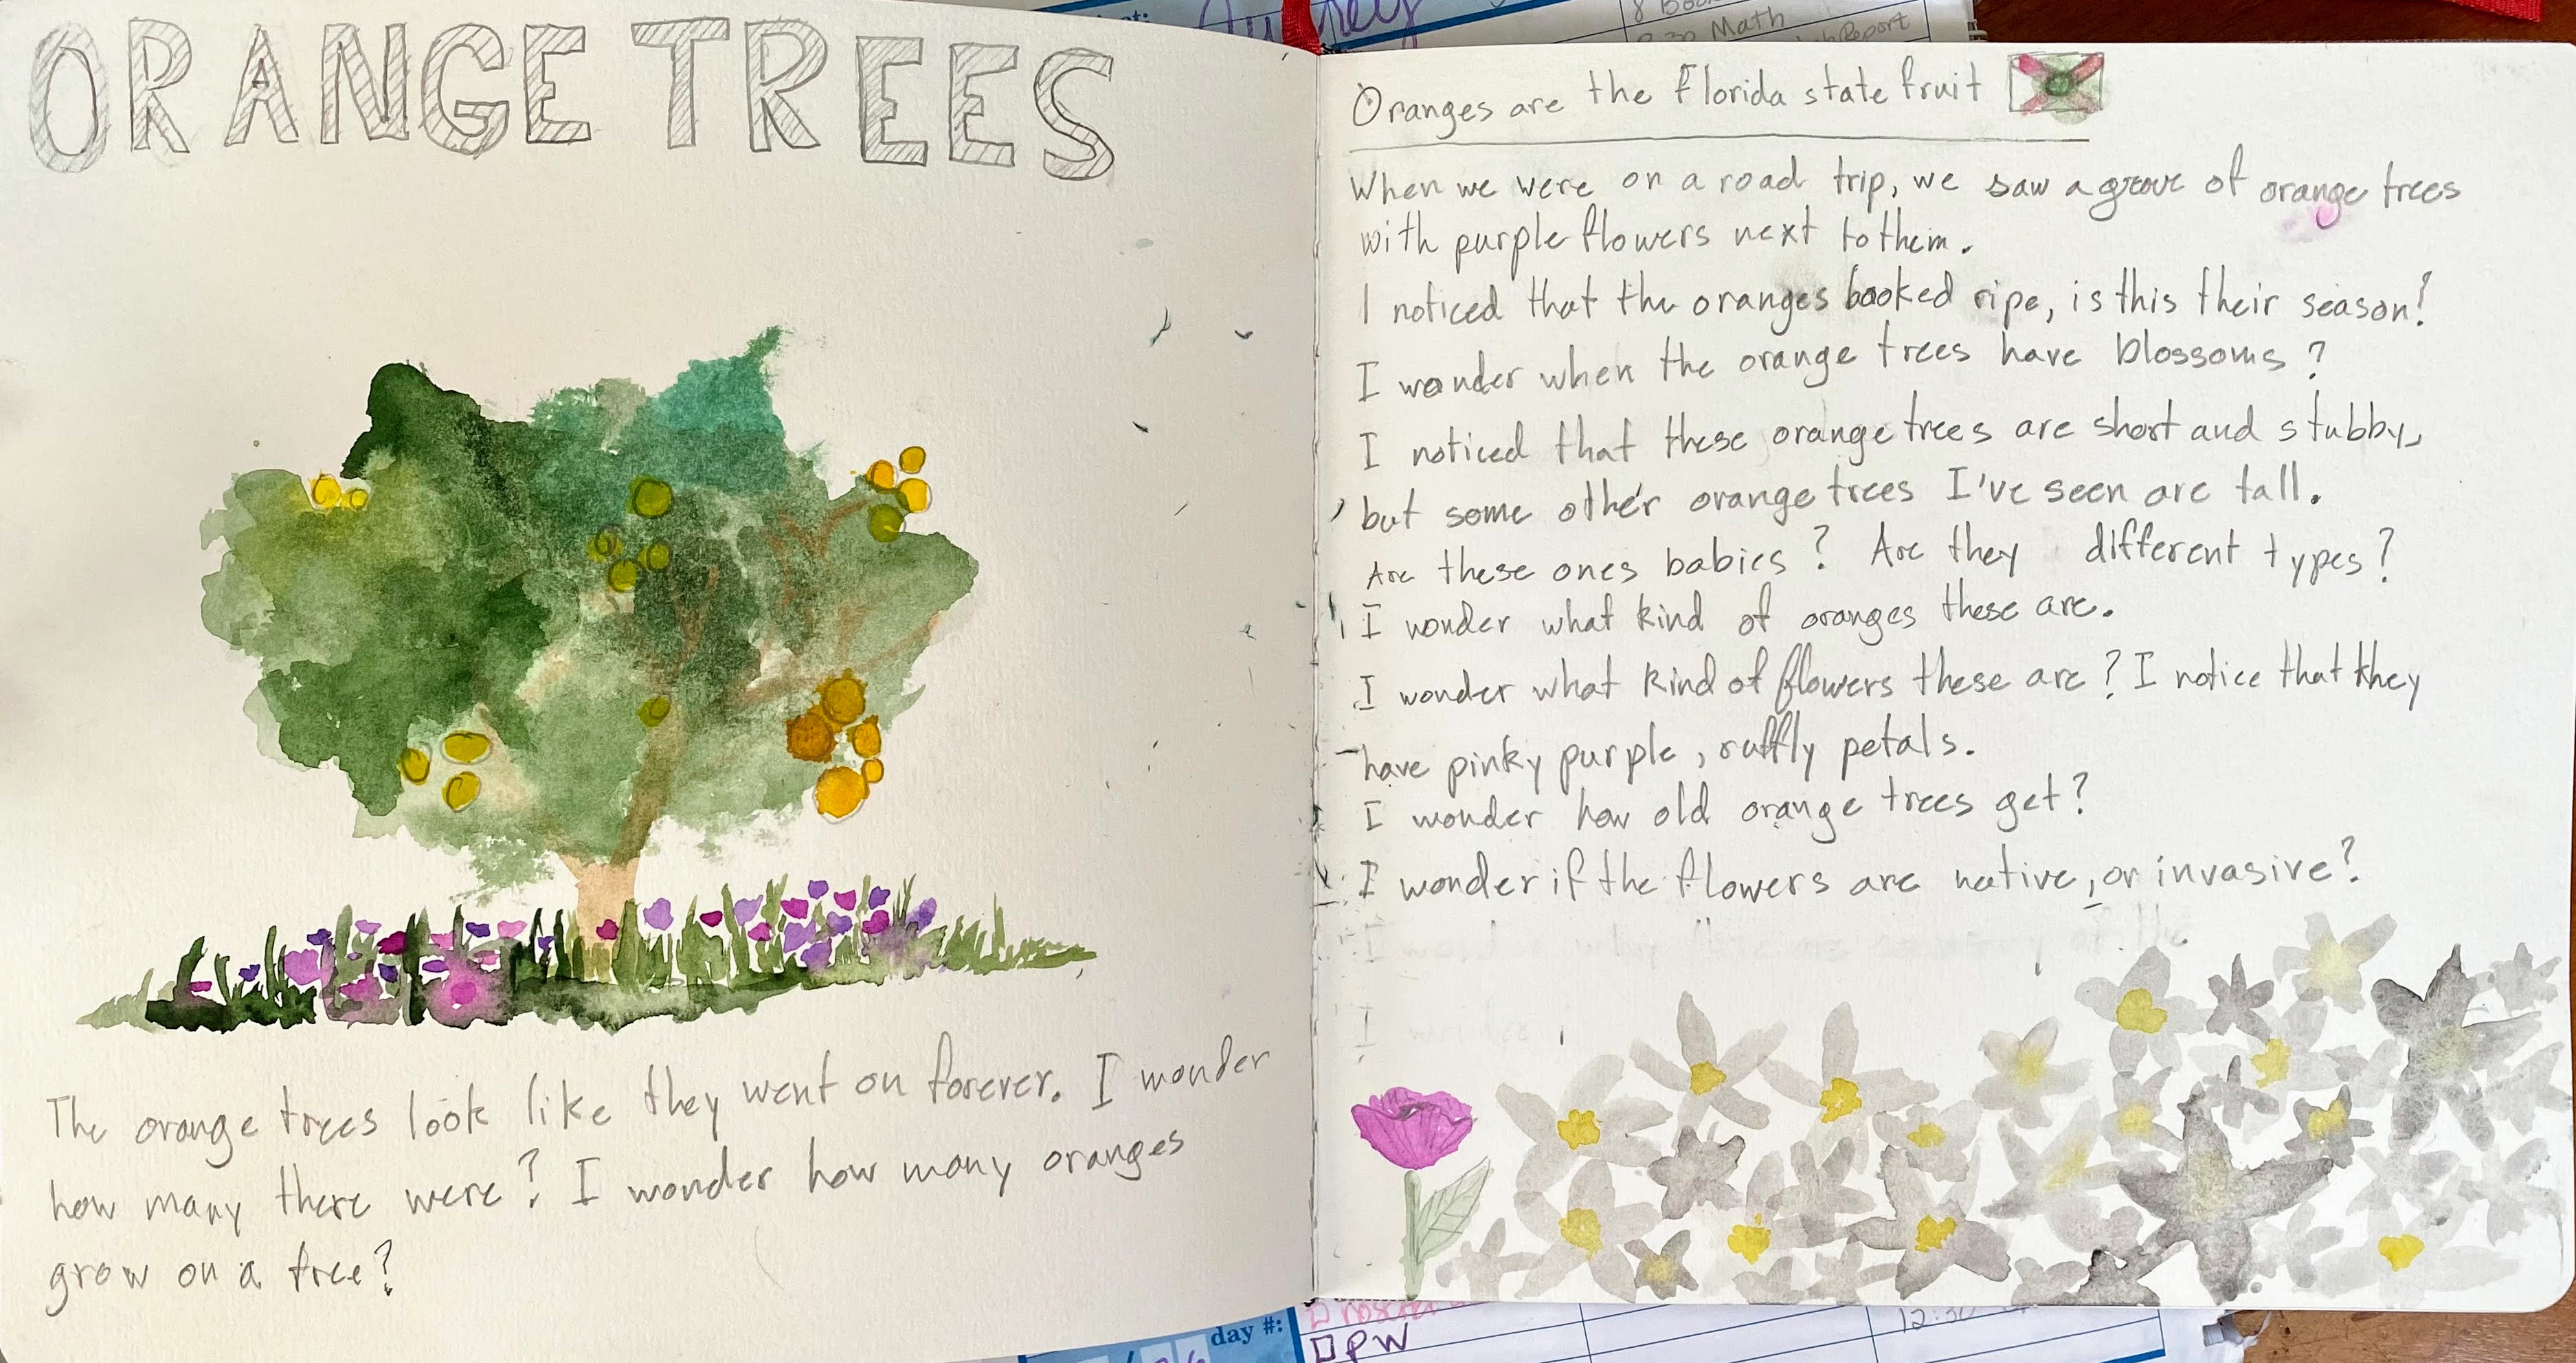 ORANGE TREES
The orange trees look like they went on forever. I wonder
how many there were? I wonder how many oranges
grow on a tree?
8 Boo
:30 Math
Report
Oranges are the Florida state fruit
When we were on a road trip, we saw a grove of orange trees
with purple flowers next to them.
I noticed that the oranges booked ripe, is this their season?
I wonder when the orange trees have blossoms?
I noticed that these orange trees are short and stubby,
but some other orange trees I've seen are tall.
Are these ones babies? Are they different types?
I wonder what kind of oranges these are.
I wonder what kind of flowers these are? I notice that they
have pinky purple, ruffly petals.
I wonder how old orange trees get?
I wonder if the flowers are native, or invasive?
day #:
PW
12:30